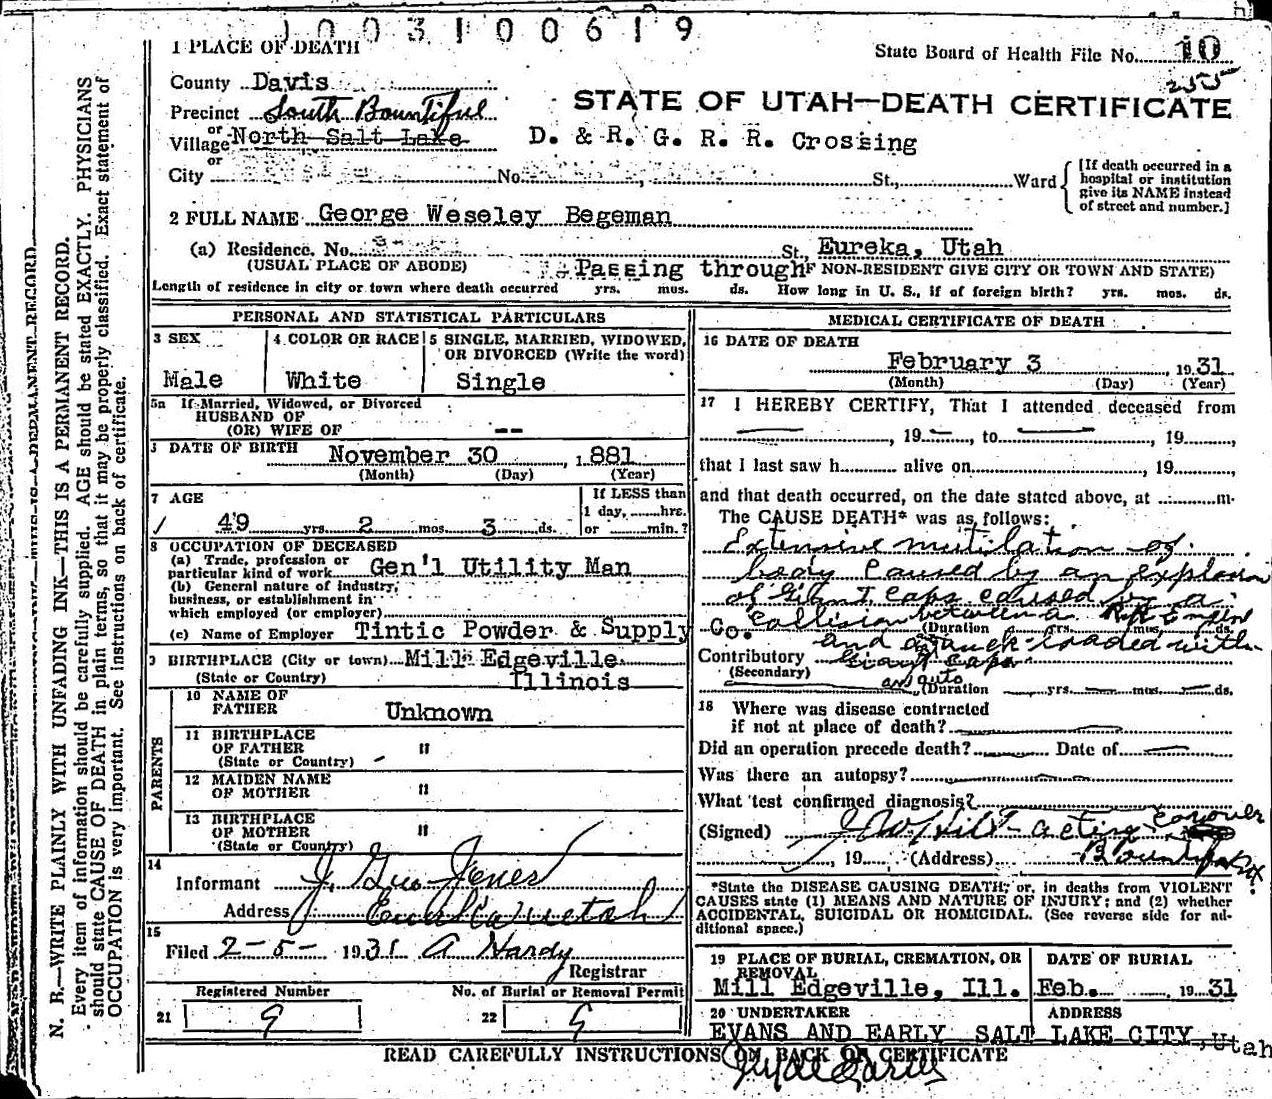 1003100619
1 PLACE OF DEATH
State Board of Health File No. 10
255
County Davis
Precinct South Bountiful
STATE OF UTAH—DEATH CERTIFICATE
or
Village North Salt Lake D. & R. G. R. R. Crossing
or
City No. St., Ward
[If death occurred in a
hospital or institution
give its NAME instead
of street and number.]
2 FULL NAME George Weseley Begeman
(a) Residence. No. St., Eureka, Utah
(USUAL PLACE OF ABODE) Passing through F NON-RESIDENT GIVE CITY OR TOWN AND STATE)
Length of residence in city or town where death occurred yrs. mos. ds. How long in U. S., if of foreign birth? yrs. mos. ds.
PERSONAL AND STATISTICAL PARTICULARS
3 SEX
Male
4 COLOR OR RACE
White
5 SINGLE, MARRIED, WIDOWED,
OR DIVORCED (Write the word)
Single
5a If Married, Widowed, or Divorced
HUSBAND OF
(OR) WIFE OF --
DATE OF BIRTH November 30, 1881
(Month) (Day) (Year)
7 AGE
49 yrs. 2 mos. 3 ds.
If LESS than
1 day, hrs.
or min.?
8 OCCUPATION OF DECEASED
(a) Trade, profession or
particular kind of work Gen'l Utility Man
(b) General nature of industry,
business, or establishment in
which employed (or employer)
(c) Name of Employer Tintic Powder & Supply Co.
9 BIRTHPLACE (City or town) Mill Edgeville
(State or Country) Illinois
PARENTS
10 NAME OF
FATHER Unknown
11 BIRTHPLACE
OF FATHER "
(State or Country)
12 MAIDEN NAME
OF MOTHER "
13 BIRTHPLACE
OF MOTHER "
(State or Country)
14
Informant J. Geo Jones
Address Eureka Utah
15
Filed 2-5- 1931 A Hardy
Registrar
Registered Number
21 9
No. of Burial or Removal Permit
22 9
MEDICAL CERTIFICATE OF DEATH
16 DATE OF DEATH
February 3 1931
(Month) (Day) (Year)
17 I HEREBY CERTIFY, That I attended deceased from
, 19 , to , 19 ,
that I last saw h alive on , 19 ,
and that death occurred, on the date stated above, at m.
The CAUSE DEATH* was as follows:
Extensive mutilation of
body caused by an explosion
of Giant Caps caused by a
collision between a R.R. Engine
(Duration yrs. mos. ds.
and a truck loaded with
Contributory Giant Caps
(Secondary) an auto
(Duration yrs. mos. ds.
18 Where was disease contracted
if not at place of death?
Did an operation precede death? Date of
Was there an autopsy?
What test confirmed diagnosis?
(Signed) acting coroner
, 19 (Address) Bountiful
*State the DISEASE CAUSING DEATH; or, in deaths from VIOLENT
CAUSES state (1) MEANS AND NATURE OF INJURY; and (2) whether
ACCIDENTAL, SUICIDAL OR HOMICIDAL. (See reverse side for ad-
ditional space.)
19 PLACE OF BURIAL, CREMATION, OR
REMOVAL
Mill Edgeville, Ill.
DATE OF BURIAL
Feb. , 1931
20 UNDERTAKER
ADDRESS
EVANS AND EARLY SALT LAKE CITY, Utah
READ CAREFULLY INSTRUCTIONS ON BACK OF CERTIFICATE
N. B.—WRITE PLAINLY WITH UNFADING INK—THIS IS A PERMANENT RECORD.
Every item of information should be carefully supplied. AGE should be stated EXACTLY. PHYSICIANS
should state CAUSE OF DEATH in plain terms, so that it may be properly classified. Exact statement of
OCCUPATION is very important. See instructions on back of certificate.